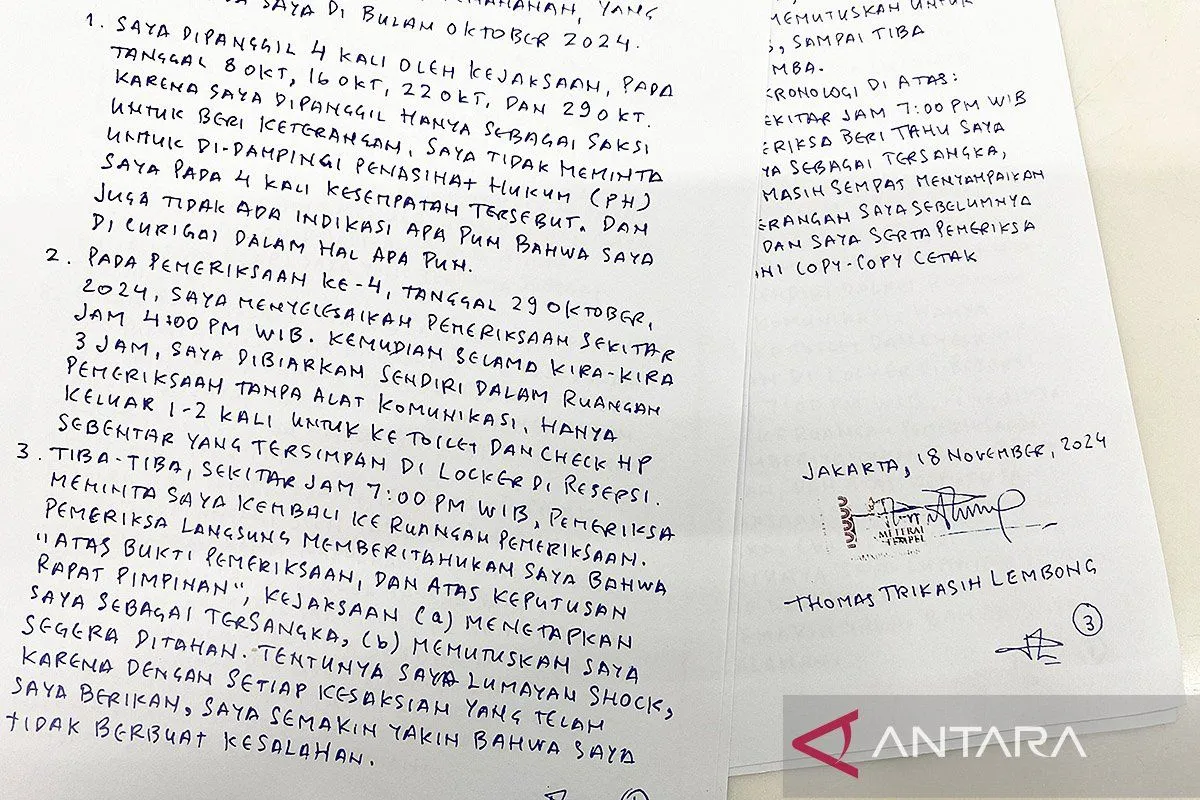 YANG
SAYA DI BULAN OKTOBER 2024.
1. SAYA DIPANGGIL 4 KALI OLEH KEJAKSAAN, PADA
TANGGAL 8 OKT, 16 OKT, 22 OKT, DAN 29 OKT.
KARENA SAYA DIPANGGIL HANYA SEBAGAI SAKSI
UNTUK BERI KETERANGAN, SAYA TIDAK MEMINTA
UNTUK DI-DAMPINGI PENASIHAT HUKUM (PH)
SAYA PADA 4 KALI KESEMPATAN TERSEBUT. DAN
JUGA TIDAK ADA INDIKASI APA PUN BAHWA SAYA
DI CURIGAI DALAM HAL APA PUN.
2. PADA PEMERIKSAAN KE-4, TANGGAL 29 OKTOBER,
2024, SAYA MENYELESAIKAN PEMERIKSAAN SEKITAR
JAM 4:00 PM WIB. KEMUDIAN SELAMA KIRA-KIRA
3 JAM, SAYA DIBIARKAN SENDIRI DALAM RUANGAN
PEMERIKSAAN TANPA ALAT KOMUNIKASI, HANYA
KELUAR 1-2 KALI UNTUK KE TOILET DAN CHECK HP
SEBENTAR YANG TERSIMPAN DI LOCKER DI RESEPSI.
3. TIBA-TIBA, SEKITAR JAM 7:00 PM WIB, PEMERIKSA
MEMINTA SAYA KEMBALI KE RUANGAN PEMERIKSAAN.
PEMERIKSA LANGSUNG MEMBERITAHUKAN SAYA BAHWA
"ATAS BUKTI PEMERIKSAAN, DAN ATAS KEPUTUSAN
RAPAT PIMPINAN", KEJAKSAAN (a) MENETAPKAN
SAYA SEBAGAI TERSANGKA, (b) MEMUTUSKAN SAYA
SEGERA DITAHAN. TENTUNYA SAYA LUMAYAN SHOCK,
KARENA DENGAN SETIAP KESAKSIAN YANG TELAH
SAYA BERIKAN, SAYA SEMAKIN YAKIN BAHWA SAYA
TIDAK BERBUAT KESALAHAN.
MEMUTUSKAN UNTUK
, SAMPAI TIBA
MBA.
KRONOLOGI DI ATAS:
EKITAR JAM 7:00 PM WIB
ERIKSA BERI TAHU SAYA
YA SEBAGAI TERSANGKA,
MASIH SEMPAT MENYAMPAIKAN
ERANGAN SAYA SEBELUMNYA
DAN SAYA SERTA PEMERIKSA
INI COPY-COPY CETAK
JAKARTA, 18 NOVEMBER, 2024
METERAI
TEMPEL
THOMAS TRIKASIH LEMBONG
3
ANTARA